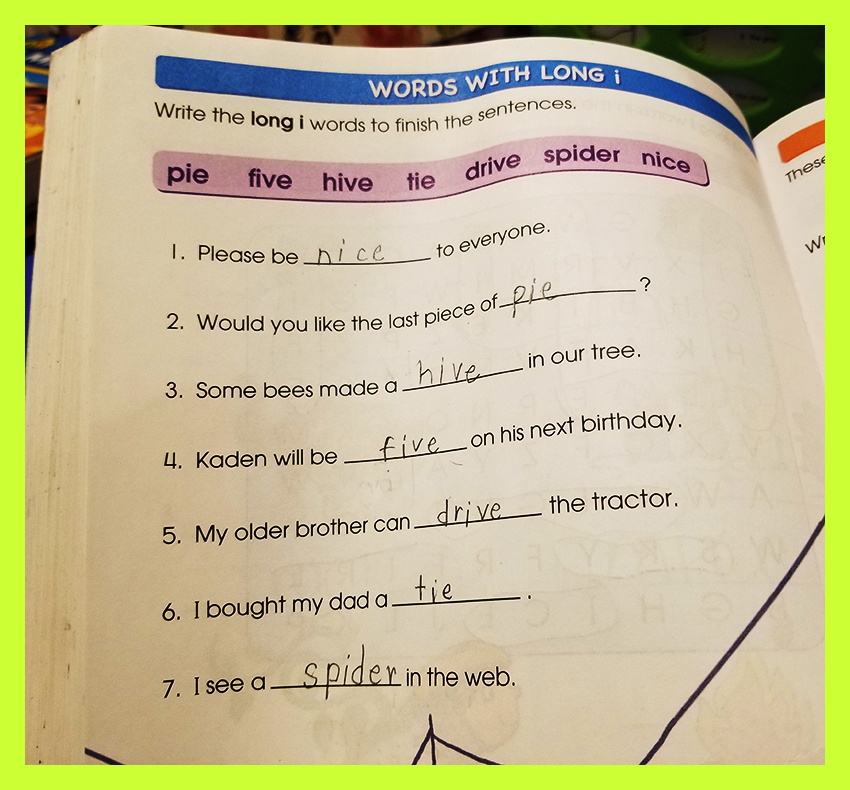 WORDS WITH LONG i
Write the long i words to finish the sentences.
pie five hive tie drive spider nice
1. Please be nice to everyone.
2. Would you like the last piece of pie ?
3. Some bees made a hive in our tree.
4. Kaden will be five on his next birthday.
5. My older brother can drive the tractor.
6. I bought my dad a tie .
7. I see a spider in the web.
These